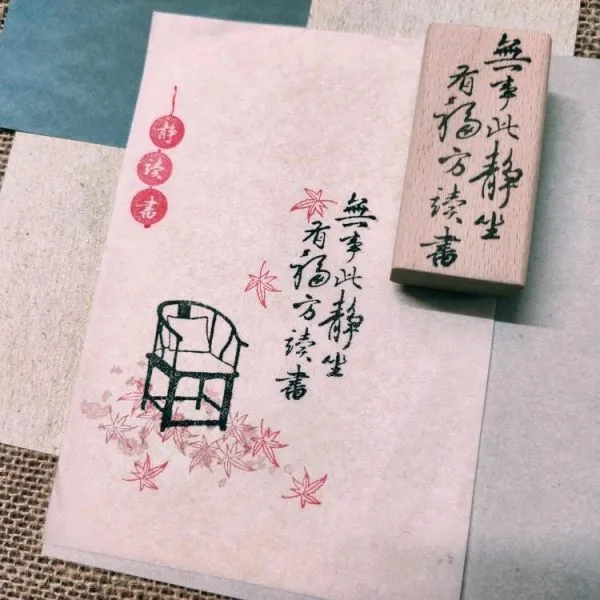 靜
讀
書
無事此靜坐
有福方讀書
無事此靜坐
有福方讀書